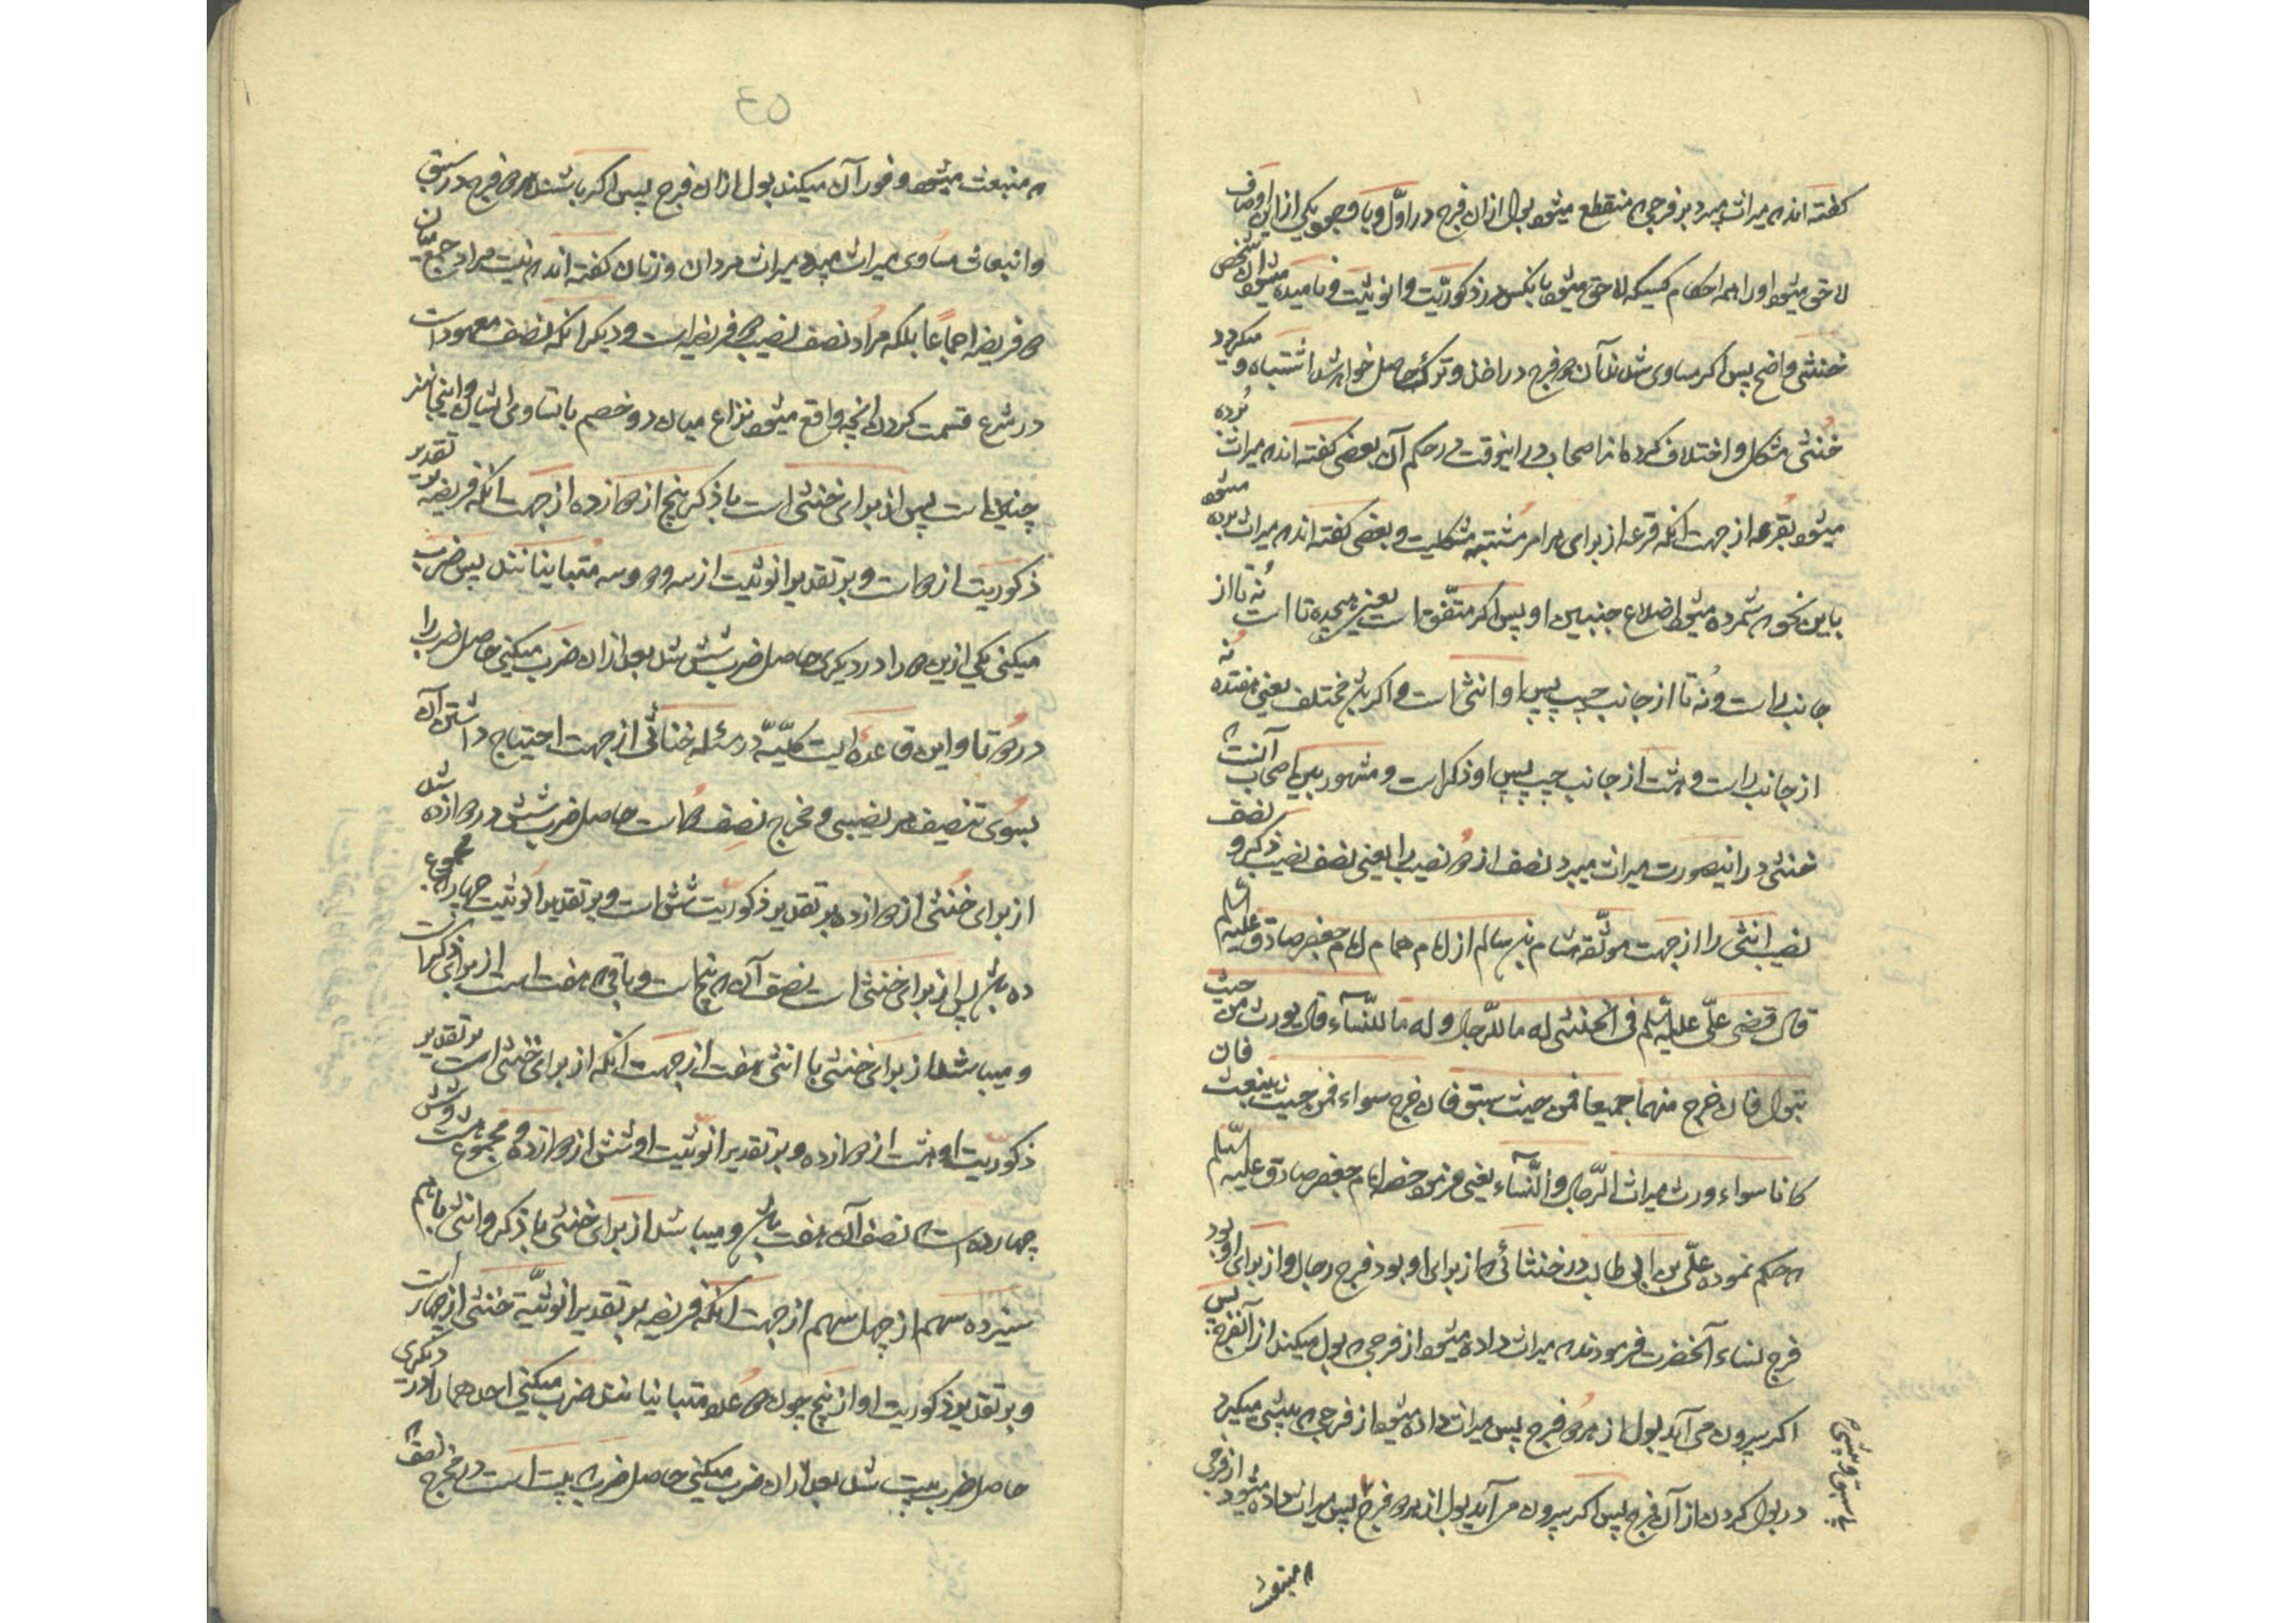 کفته اند که میراث میبرد بر فرجی که منقطع میشود بول از ان فرج در اوّل و با وجود یکی از این اوصاف
لاحق میشود او را همه احکام کسیکه لاحق میشود بانکس در ذکوریّت و انوثیّت و نامیده میشود ان شخص
خنثی واضح پس اکر مساوی شدند آن دو فرج در اخذ و ترک حاصل خواهد شد اشتباه و میکردد
خُنثی مشکل و اختلاف کرده اند اصحاب در اینوقت در حکم آن بعضی کفته اند که میراث برده
میشود بقرعه از جهت انکه قرعه از برای هر امر مُشتبه مشکلیست و بعضی کفته اند که میراث برده میشود
باین نحو که شمرده میشود اضلاع جنبین او پس اکر متّفق است یعنی هیجده تا است نُه تا از
جانب راست و نُه تا از جانب چپ پس او انثی است و اکر باشد مختلف یعنی هفده نُه
از جانب راست و هشت از جانب چپ پس او ذکر است و مشهور بین اصحاب آنست که
خنثی در اینصورت میراث میبرد نصف از دو نصیب را یعنی نصف نصیب ذکر و نصف
نصیب انثی را از جهت موثّقه هشام بن سالم از امام همام امام جعفر صادق علیه السلم
قال قضی علّی علیه السلم فی الخنثی له ما للرّجال و له ما للنّسآء قال یورث من حیث
یبول فان خرج منهما جمیعا فمن حیث سبق فان خرج سواء فمن حیث ینبعث فان
کانا سواء ورث میراث الرّجال والنّسآء یعنی فرمود حضرت امام جعفر صادق علیه السّلم
که حکم نموده علّی بن ابی طالب در خنثائی که از برای او بود فرج رجال و از برای او بود
فرج نساء آنحضرت فرمودند که میراث داده میشود از فرجی که بول میکند از آنفرج پس
اکر بیرون می آید بول از هر دو فرج پس میراث داده میشود از فرجی که پیشی میکیرد
در بول کردن از آن فرج پس اکر بیرون می آید بول از هر دو فرج پس میراث داده میشود از فرجی
که منبعث
٤٥
که منبعث میشود و فوران میکند بول از ان فرج پس اکر باشند هر دو فرج در سبق
و انبعاث مساوی میراث میبرد میراث مردان و زنان کفته اند که نیست مراد جمع میان
دو فریضه اجماعًا بلکه مراد نصف نصیب دو فریضه است و دیکر انکه نصف معهود است
در شرع قسمت کردن انچه واقع میشود نزاع میان دو خصم با تساوی ایشان و اینجا نیز
چنین است پس از برای خنثی است با ذکر پنج از دوازده از جهت انکه فریضه بر تقدیر
ذکوریت از دو است و بر تقدیر انوثیت از سه و دو و سه متباینانند پس ضرب
میکنی یکی ازین دو را در دیکری حاصل ضرب شش شد بعد از ان ضرب میکنی حاصل ضرب را
در دو تا و این قاعدهٔ ایست کلّیّه در مسئله خناثی از جهت احتیاج داشتن آن
بسوی تنصیف هر نصیبی و مخرج نصف دو است حاصل ضرب شش در دو دوازده شد
از برای خُنثی از دوازده بر تقدیر ذکوریّت شش است و بر تقدیر انوثیت چهار مجموع
ده باشد پس از برای خنثی است نصف آن که پنج است و باقی که هفت است از برای ذکر است
و میباشد از برای خنثی با انثی هفت از جهت انکه از برای خنثی است بر تقدیر
ذکوریّت او هشت از دوازده و بر تقدیر انوثیت او شش از دوازده و مجموع هشت و شش
چهارده است که نصف آن هفت باشد و میباشد از برای خنثی با ذکر و انثی با هم
سیزده سهم از چهل سهم از جهت انکه فریضه بر تقدیر انوثیّة خنثی از چهار است
و بر تقدیر ذکوریت او از پنج چون دو عدد متباینانند ضرب میکنی احدهما را در دیکری
حاصل ضرب بیست شد بعد از ان ضرب میکنی حاصل ضرب که بیست است در مخرج نصف که